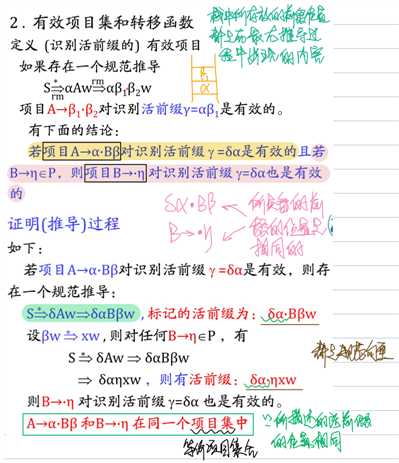 2. 有效项目集和转移函数
定义 (识别活前缀的) 有效项目
如果存在一个规范推导
S ⇒* rm αAw ⇒ rm αβ₁β₂w
β₁
α
项目A→β₁·β₂对识别活前缀γ=αβ₁是有效的。
有下面的结论:
若项目A→α·Bβ对识别活前缀γ=δα是有效的且若
B→η∈P, 则项目B→·η对识别活前缀γ=δα也是有效
的
δα·Bβ
B→·η
相同的
证明(推导)过程
如下:
若项目A→α·Bβ对识别活前缀γ=δα是有效, 则存
在一个规范推导:
S⇒*δAw⇒δαBβw, 标记的活前缀为: δα·Bβw
设βw ⇒* xw, 则对任何B→η∈P, 有
S ⇒* δAw ⇒ δαBβw
⇒ δαηxw, 则有活前缀: δα·ηxw
则B→·η 对识别活前缀γ=δα 也是有效的。
A→α·Bβ 和B→·η 在同一个项目集中
的位置相同
等价项目集合